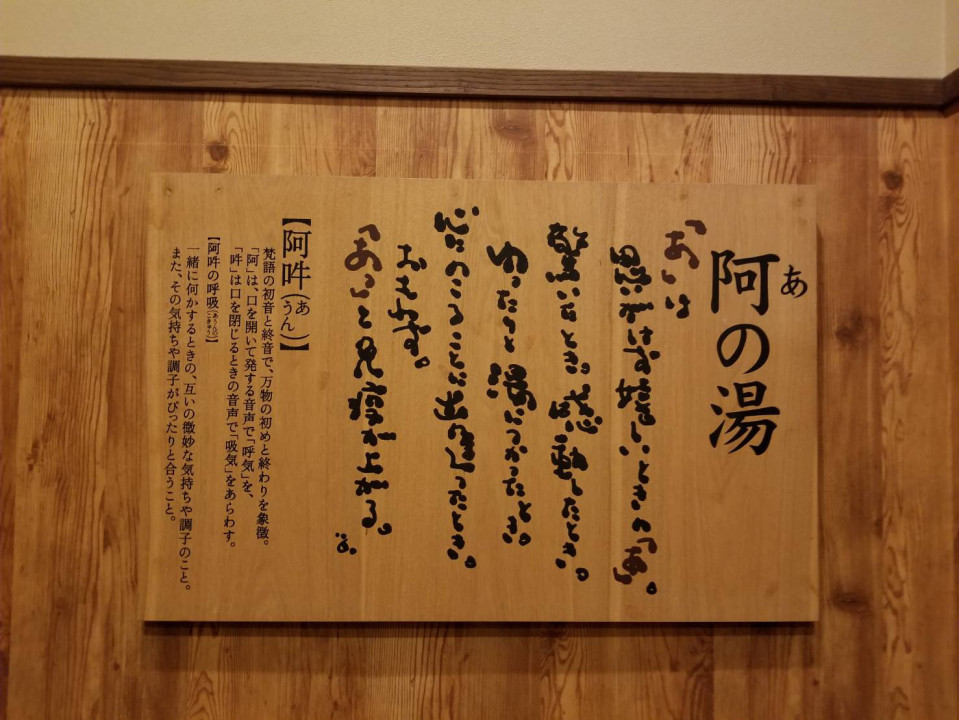 阿の湯
あ
「あ」は
思いがけず嬉しいときの「あ」。
驚いたとき。感動したとき。
ゆったりと湯につかったとき。
心にのこることに出逢ったとき。
おもわず。
「あっ」と見声が上がる。
【阿吽(あうん)】
梵語の初音と終音で、万物の初めと終わりを象徴。
「阿」は、口を開いて発する音声で「呼気」を、
「吽」は口を閉じるときの音声で「吸気」をあらわす。
【阿吽の呼吸(あうんのこきゅう)】
一緒に何かするときの、互いの微妙な気持ちや調子のこと。
また、その気持ちや調子がぴったりと合うこと。